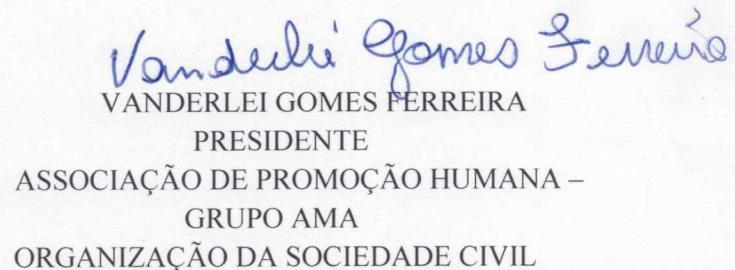 Vanderlei Gomes Ferreira
VANDERLEI GOMES FERREIRA
PRESIDENTE
ASSOCIAÇÃO DE PROMOÇÃO HUMANA –
GRUPO AMA
ORGANIZAÇÃO DA SOCIEDADE CIVIL